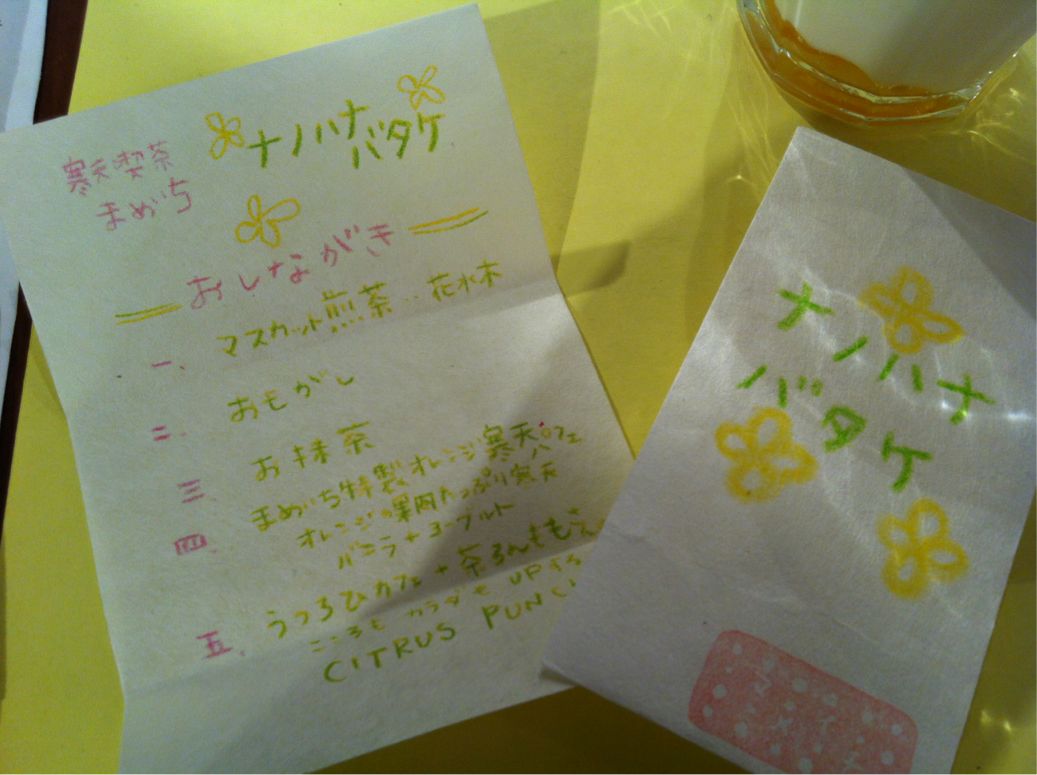 寒天喫茶
まめいち
ナノハナ
バタケ
おしながき
一、マスカット煎茶‥花水木
二、おもがし
三、お抹茶
四、まめいち特製オレンジ寒天パフェ
オレンジの果肉たっぷり寒天
バニラ+ヨーグルト
五、うつろひカフェ+茶ろんきもの
こころもカラダもUPする
CITRUS PUNC
ナノハナ
バタケ